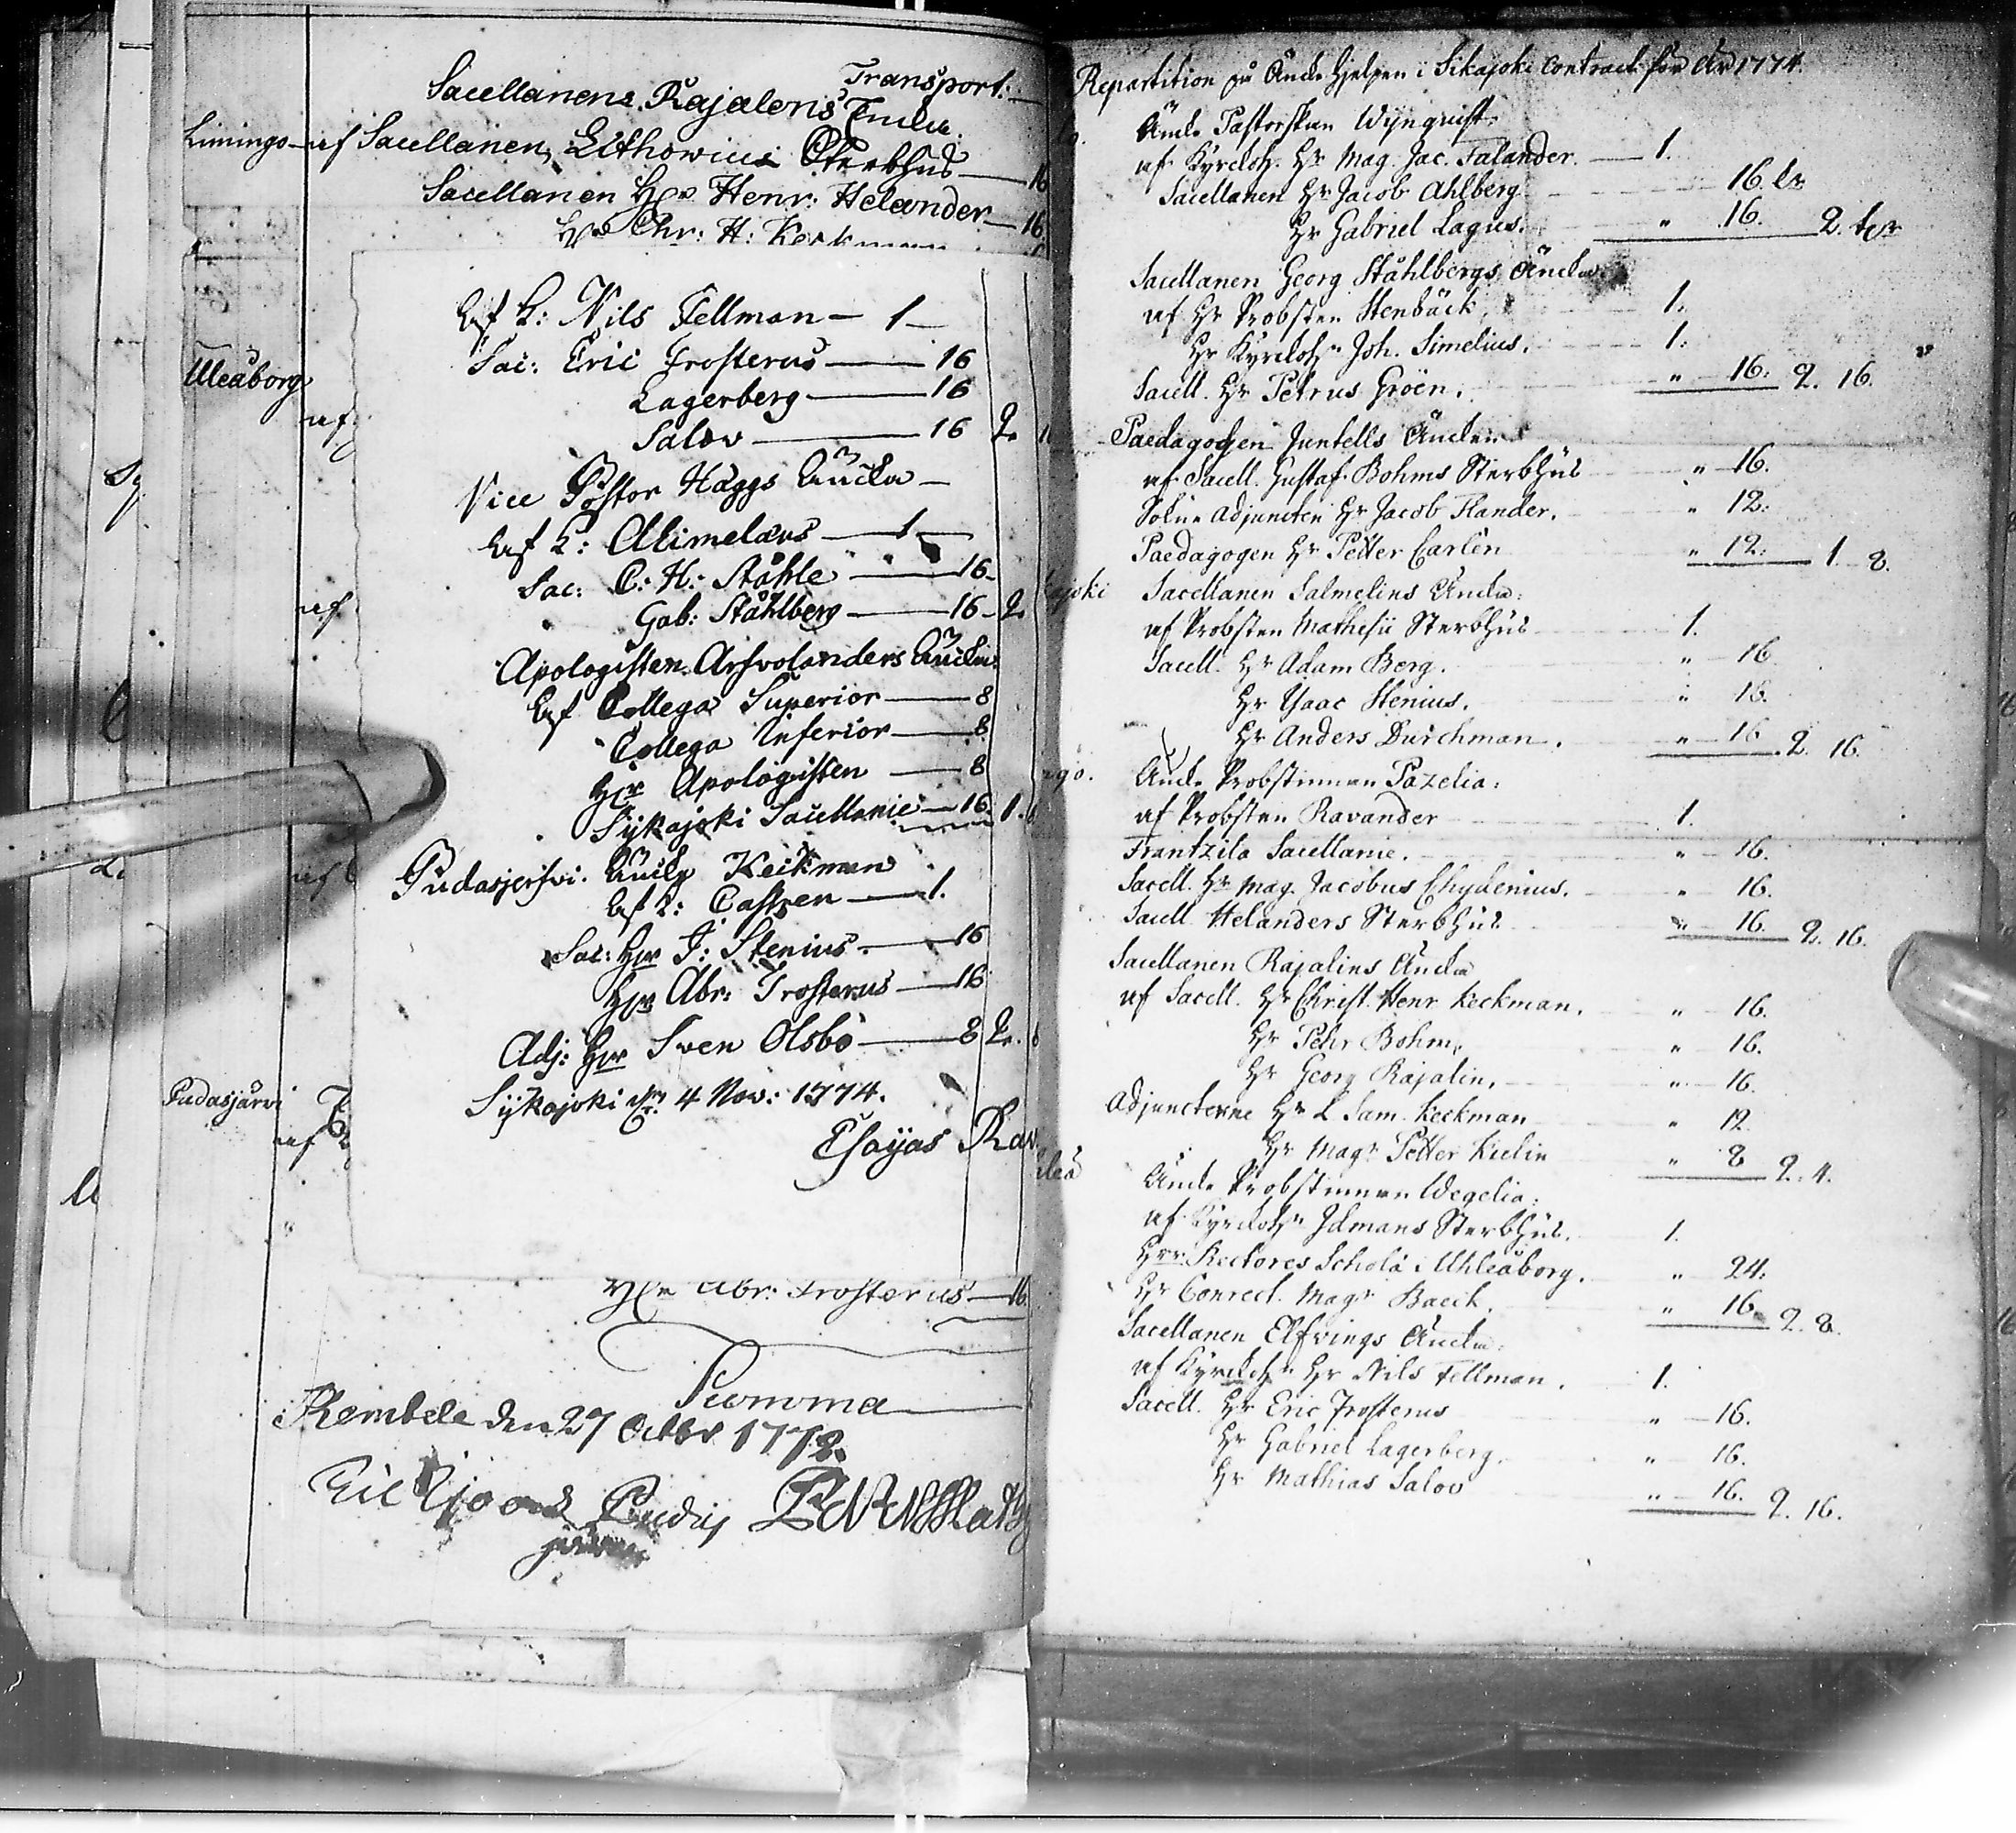 Transport.
Sacellanens Rajalens Encka
Limingo af Sacellanen Lithovius Sterbhus — 16
Sacellanen Hr Henr: Helander — 16
Hr Chr: H: Keckman
Af K: Nils Fellman — 1 —
Uleåborg
Sac: Eric Frosterus — 16
Lagerberg — 16
af
Salov — 16 2.
Vice Pastor Häggs Äncka —
Af K: Alimelæus — 1 —
Sac: C: H: Ståhle — 16 —
af
Gab: Ståhlberg — 16 — 2
Apologisten Arfvolanders Äncka
Af Collega Superior — 8
Collega Inferior — 8
Hr Apologisten — 8
Sijkajoki Sacellanie — 16 1.
Pudasjerfvi. Äncka Keckman
af
Af K: Castren — 1.
Sac: Hr J: Stenius — 16
Hr Abr: Frosterus — 16
Adj: Hr Sven Olsbo — 8 2.
Pudasjärvi
Sijkajoki d. 4 Nov: 1774.
af
Esaijas Rav
Hr Abr: Frosterus — 16
Summa
Kembele den 27 Octbr 1772.
Repartition på Äncke hjelpen i Sikajoki Contract för År 1774.
Äncke Pastorskan Wynquist
af Kyrckoh. Hr Mag. Jac. Falander. — 1.
Sacellanen Hr Jacob Ahlberg — 16. ör
Hr Gabriel Lagus. " 16. 2. dlr
Sacellanen Georg Ståhlbergs Äncka
af Hr Probsten Stenbäck, 1.
Hr Kyrckoh. Joh. Simelius. 1.
Sacell. Hr Petrus Groen. " 16. 2. 16.
Paedagogen Juntells Äncka
af Sacell. Gustaf Bohms Sterbhus " 16.
Sokne Adjuncten Hr Jacob Flander. " 12.
Paedagogen Hr Petter Carlén " 12. 1. 8.
joki Sacellanen Salmelins Äncka:
af Probsten Mathesii Sterbhus 1.
Sacell. Hr Adam Berg. " 16
Hr Ysaac Stenius. " 16.
Hr Anders Durchman. " 16 2. 16.
go. Äncke Probstinnan Pazelia:
af Probsten Ravander 1.
Frantzila Sacellanie. " 16.
Sacell. Hr Mag. Jacobus Chydenius. " 16.
Sacell Helanders Sterbhus " 16. 2. 16.
Sacellanen Rajalins Äncka
af Sacell. Hr Christ. Henr Keckman. " 16.
Hr Pehr Bohm, " 16.
Hr Georg Rajalin. " 16.
Adjuncterne Hr L Sam. Keckman " 12.
Hr Magr Petter Kielin " 8 2. 4.
leå Äncke Probstinnan Wegelia:
af Kyrckoh. Idmans Sterbhus. 1.
Hrr Rectores Scholæ i Uhleåborg. " 24.
Hr Conrect. Magr Baeck. " 16 2. 8.
Sacellanen Elfvings Äncka:
af Kyrckoh. Hr Nils Fellman. 1.
Sacell. Hr Eric Frosterus " 16.
Hr Gabriel Lagerberg. " 16.
Hr Mathias Salov " 16. 2. 16.